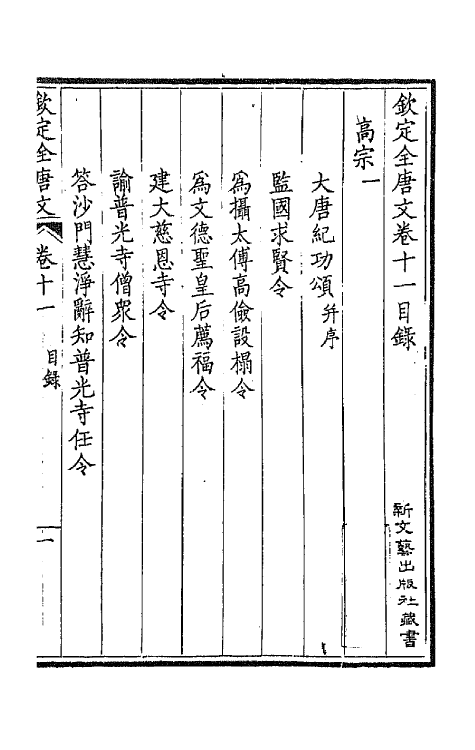 欽定全唐文卷十一目錄
新文藝出版社藏書
高宗一
大唐紀功頌并序
監國求賢令
為攝太傅高儉設榻令
為文德聖皇后薦福令
建大慈恩寺令
諭普光寺僧眾令
答沙門慧淨辭知普光寺任令
欽定全唐文 卷十一 目錄 一